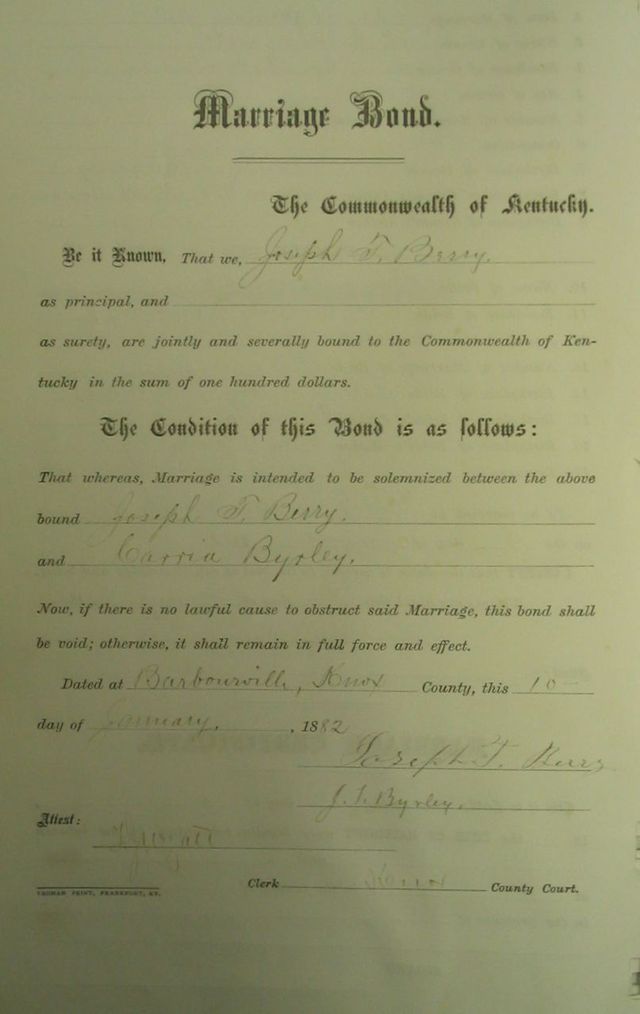 Marriage Bond.
The Commonwealth of Kentucky.
Be it Known, That we, Joseph T. Berry.
as principal, and
as surety, are jointly and severally bound to the Commonwealth of Ken-
tucky in the sum of one hundred dollars.
The Condition of this Bond is as follows:
That whereas, Marriage is intended to be solemnized between the above
bound Joseph T. Berry.
and Carria Byrley.
Now, if there is no lawful cause to obstruct said Marriage, this bond shall
be void; otherwise, it shall remain in full force and effect.
Dated at Barbourville, Knox County, this 10
day of January, , 1882
Joseph T. Berry
J. T. Byrley.
Attest:
Clerk Knox County Court.
YEOMAN PRINT, FRANKFORT, KY.